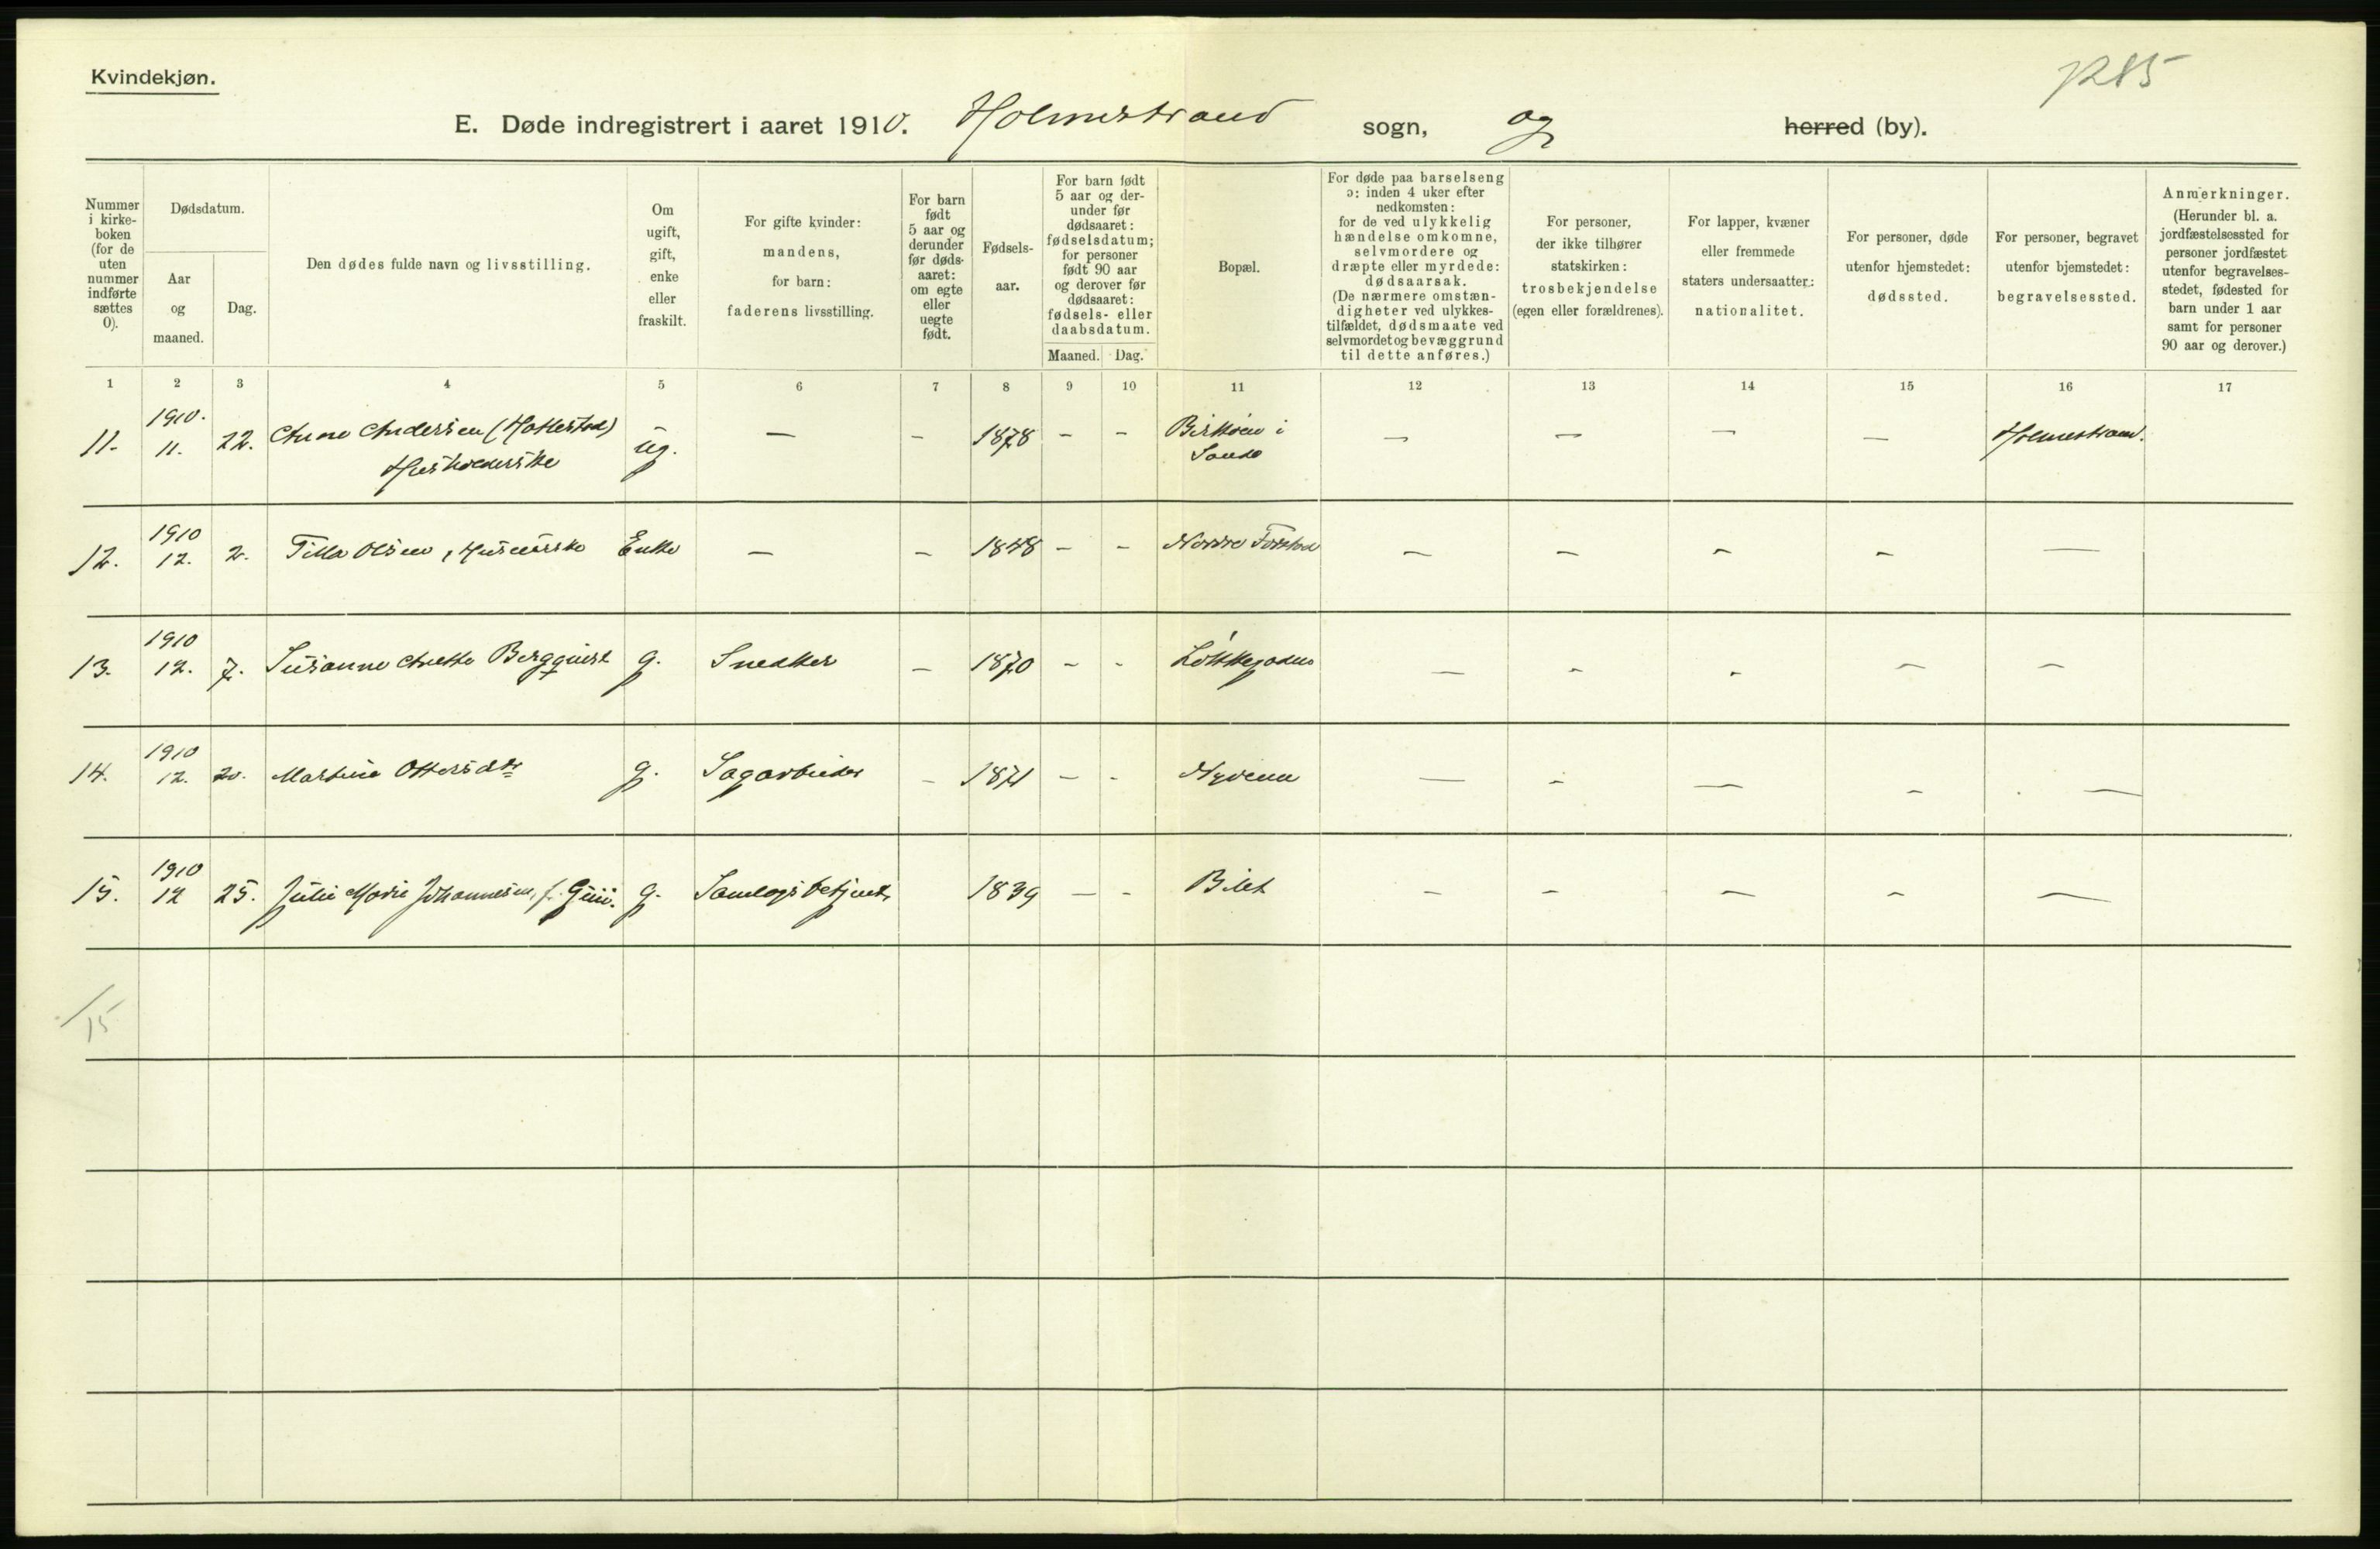 Kvindekjøn.
1285
E. Døde indregistrert i aaret 1910. Holmestrand sogn, og herred (by).
Nummer i kirke-boken (for de uten nummer indførte sættes 0).
Dødsdatum.
Aar og maaned.
Dag.
Den dødes fulde navn og livsstilling.
Om ugift, gift, enke eller fraskilt.
For gifte kvinder: mandens, for barn: faderens livsstilling.
For barn født 5 aar og derunder før døds-aaret: om egte eller uegte født.
Fødsels-aar.
For barn født 5 aar og der-under før dødsaaret: fødselsdatum; for personer født 90 aar og derover før dødsaaret: fødsels- eller daabsdatum.
Maaned. Dag.
Bopæl.
For døde paa barselseng ɔ: inden 4 uker efter nedkomsten: for de ved ulykkelig hændelse omkomne, selvmordere og dræpte eller myrdede: dødsaarsak. (De nærmere omstæn-digheter ved ulykkes-tilfældet, dødsmaate ved selvmordet og bevæggrund til dette anføres.)
For personer, der ikke tilhører statskirken: trosbekjendelse (egen eller forældrenes).
For lapper, kvæner eller fremmede staters undersaatter: nationalitet.
For personer, døde utenfor hjemstedet: dødssted.
For personer, begravet utenfor bjemstedet: begravelsessted.
Anmerkninger. (Herunder bl. a. jordfæstelsessted for personer jordfæstet utenfor begravelses-stedet, fødested for barn under 1 aar samt for personer 90 aar og derover.)
1 2 3 4 5 6 7 8 9 10 11 12 13 14 15 16 17
11. 1910. 11. 22. Anne Andersen (Hottestad) ug. — - 1878 - - i — — — — Holmestrand.
Husholderske Sande
12. 1910 12. 2. Tilla Olsen, Enke — - 1848 - - Nordre — — - - —
13. 1910 12. 7. Susanne Anette Bergquist g. Snedker - 1870 - - Løkkegaden — - - — —
14. 1910 12. 20. Martine Ottersdtr g. Sagarbeider - 1871 - - Nyveien — - — - —
15. 1910 12 25. Julie Marie Johannesen, f. g. Samlagsbetjent 1839 — - — — — — —
/15